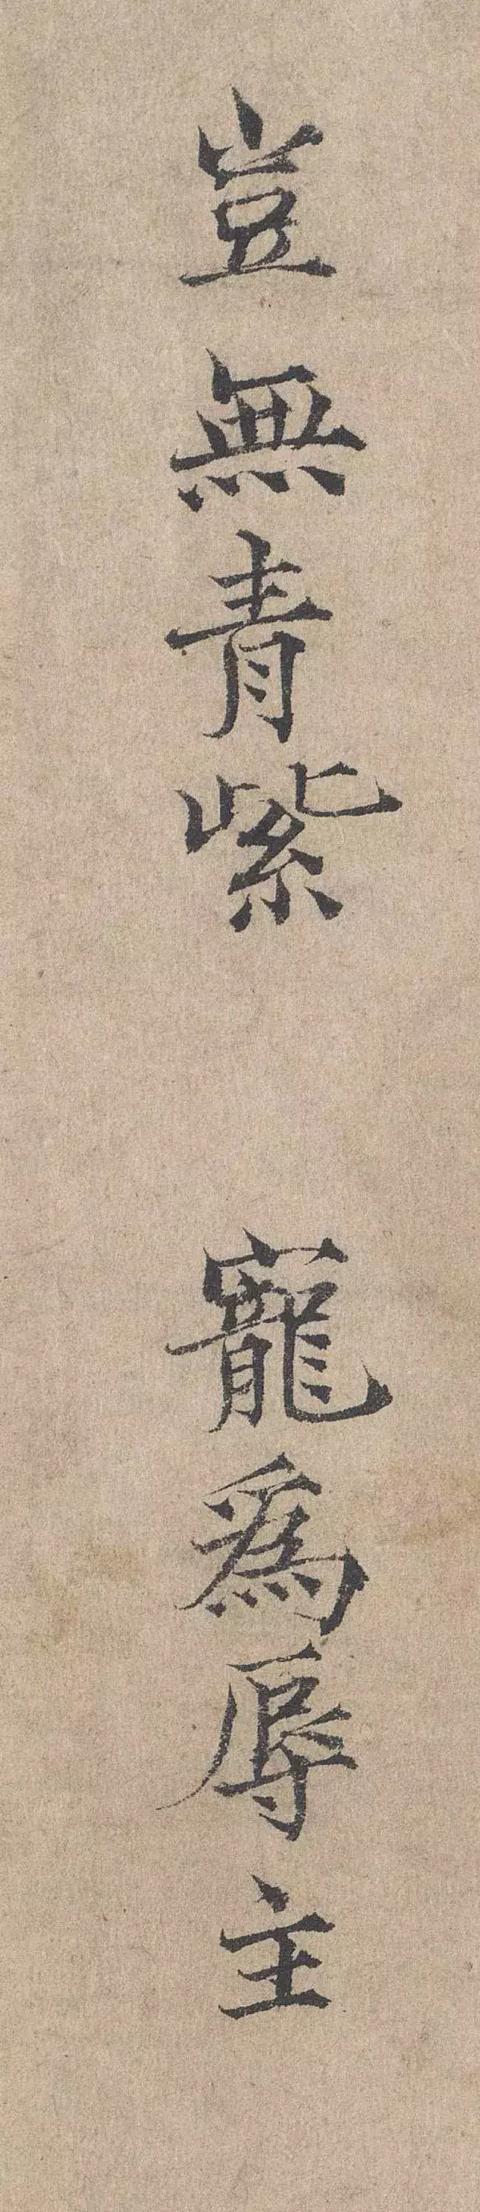 豈無青紫 寵爲辱主